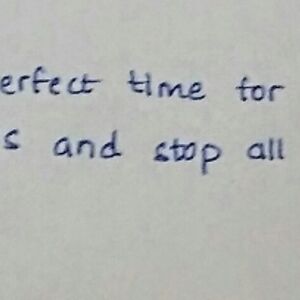 erfect time for
s and stop all